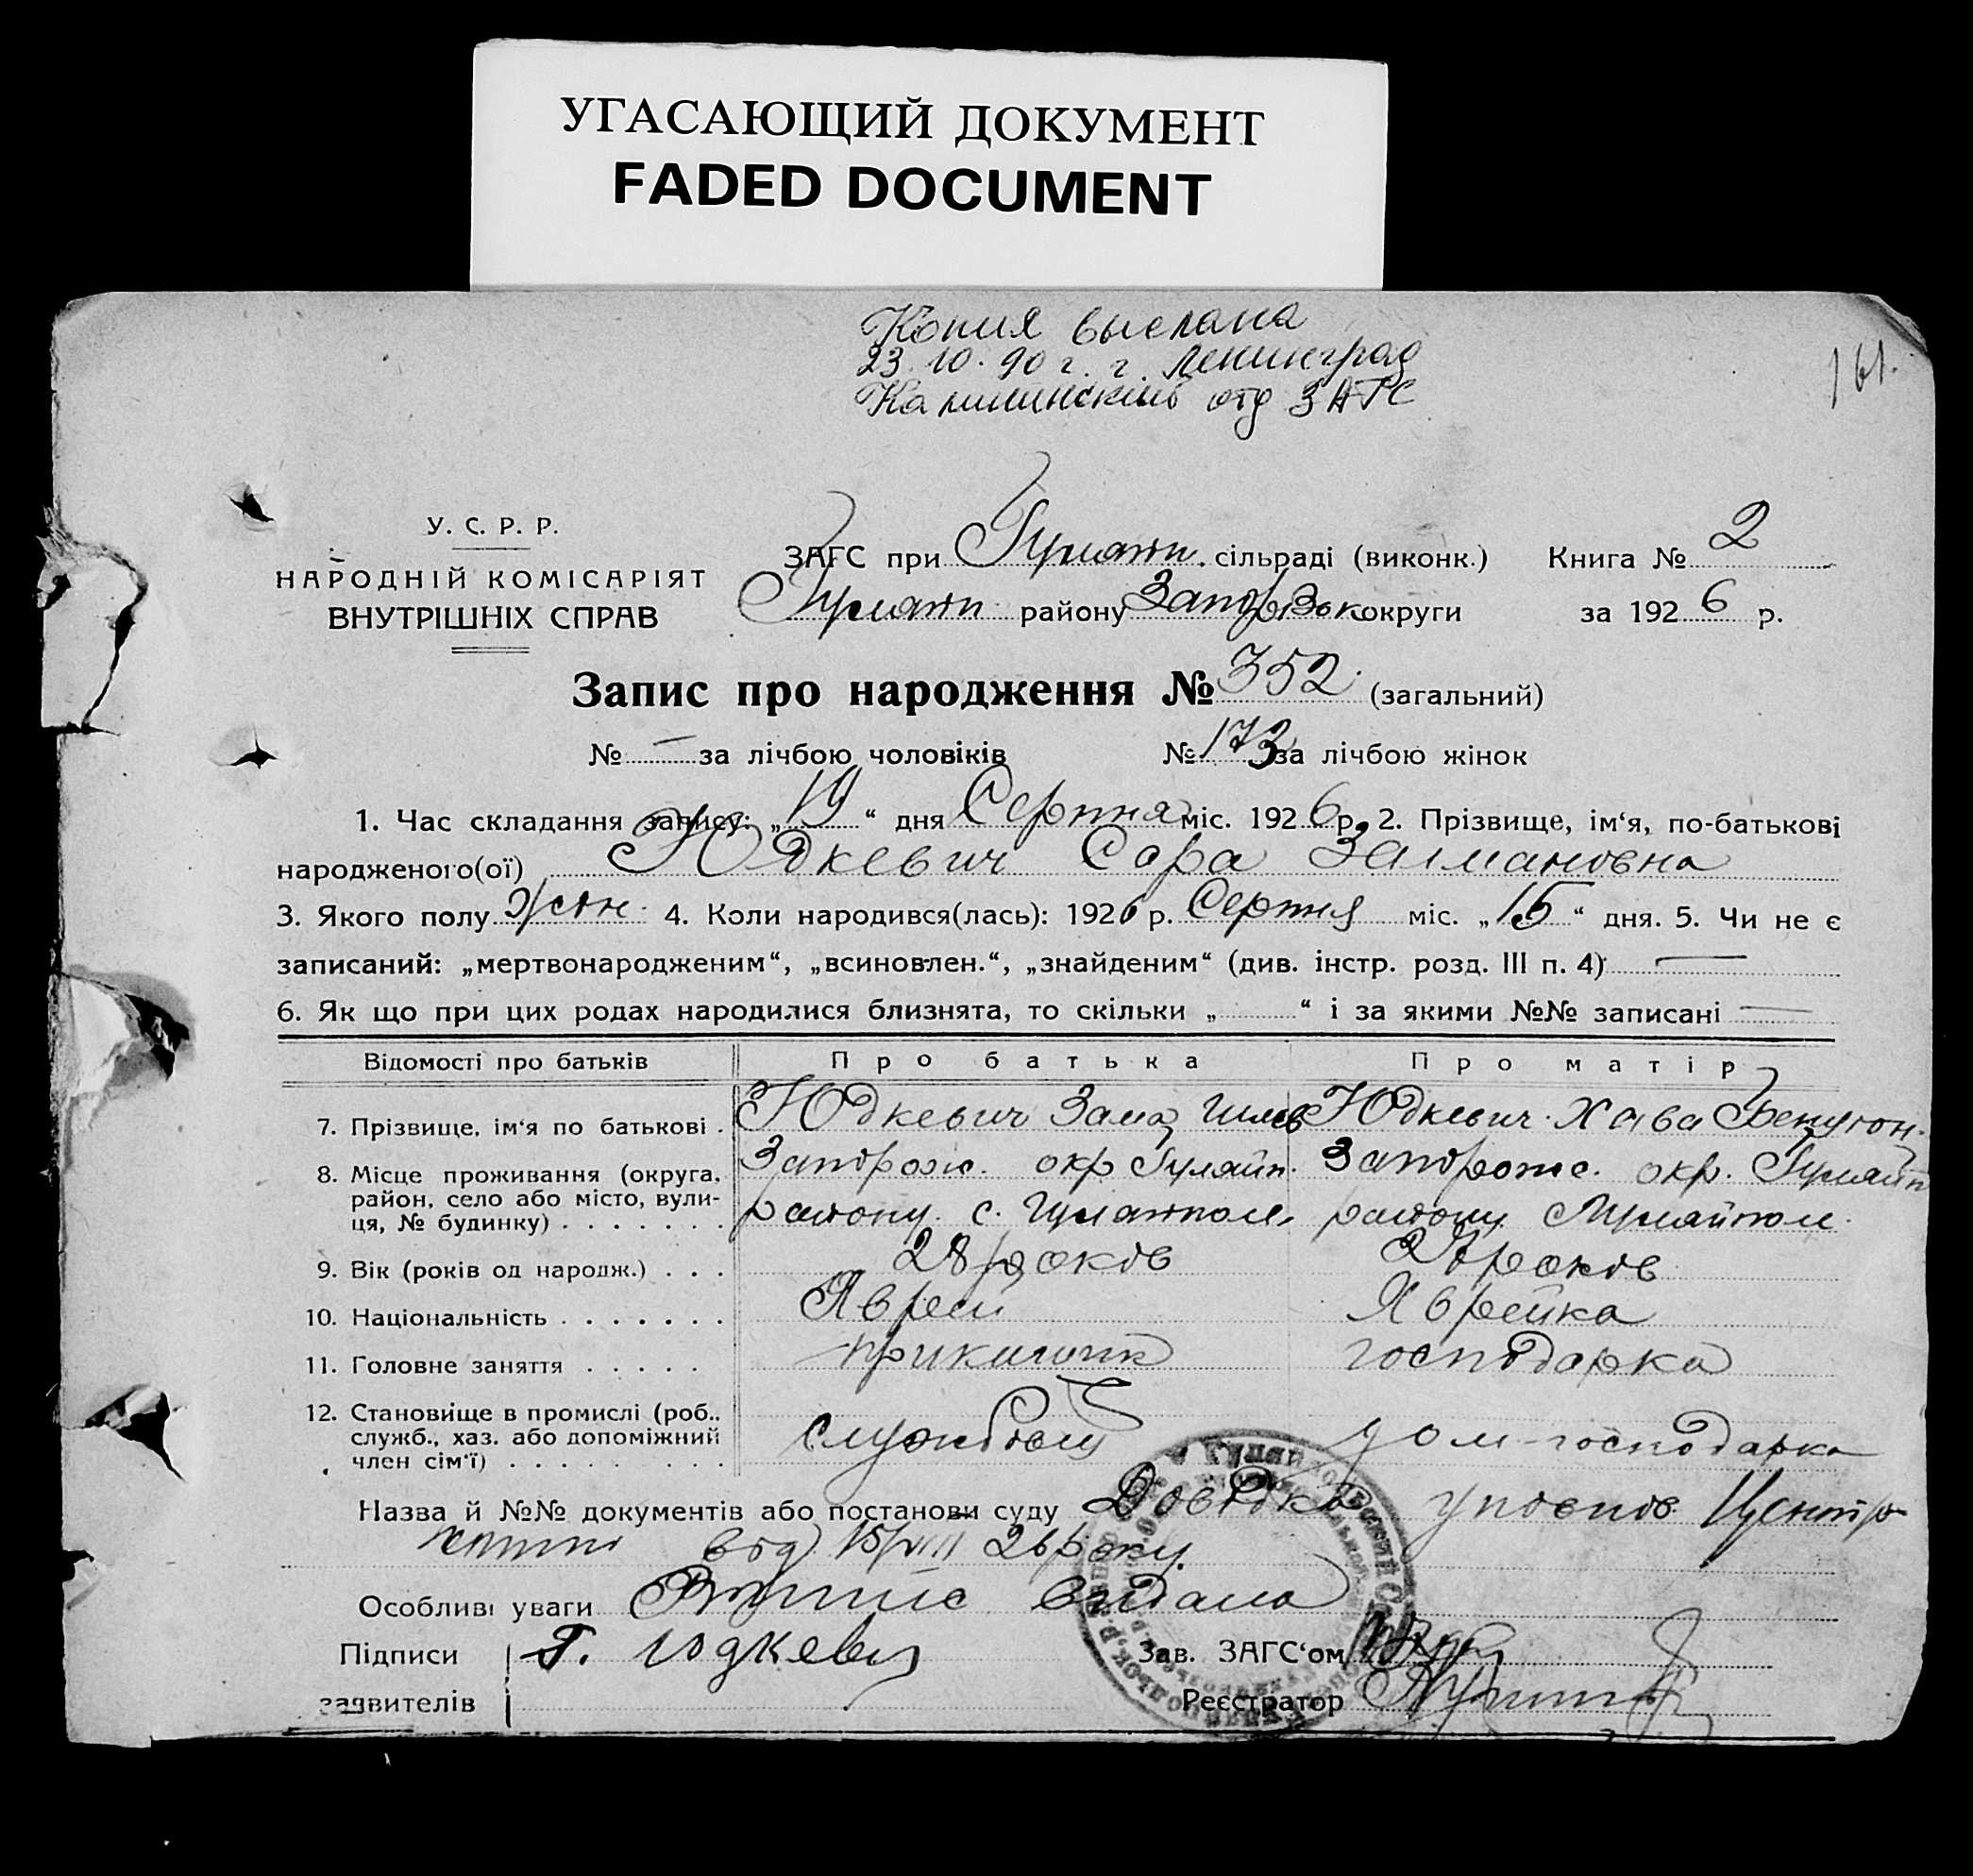 УГАСАЮЩИЙ ДОКУМЕНТ
FADED DOCUMENT
Копия выслана
23.10.90 г. г. Ленинград
Калининский отд ЗАГС
161.
У. С. Р. Р.
НАРОДНІЙ КОМІСАРІЯТ
ВНУТРІШНІХ СПРАВ
ЗАГС при Гуляйп. сільраді (виконк.) Книга № 2
Гуляйп району Запорізьк округи за 1926 р.
Запис про народження № 352 (загальний)
№ — за лічбою чоловіків № 173 за лічбою жінок
1. Час складання запису: „19“ дня Серпня міс. 1926 р. 2. Прізвище, ім‘я, по-батькові
народженого(ої) Юдкевич Сара Залмановна
3. Якого полу жін. 4. Коли народився(лась): 1926 р. Серпня міс. „15“ дня. 5. Чи не є
записаний: „мертвонародженим“, „всиновлен.“, „знайденим“ (див. інстр. розд. III п. 4) —
6. Як що при цих родах народилися близнята, то скільки „ “ і за якими №№ записані —
Відомості про батьків Про батька Про матір
7. Прізвище, ім‘я по батькові . Юдкевич Юдкевич Хава
8. Місце проживання (округа, район, село або місто, вулиця, № будинку) . . . . . . . Запорож. окр Гуляйп. Запорож. окр. Гуляйп
району с. Гуляйполе району Гуляйполе
9. Вік (років од народж.) . . . 28 років років
10. Національність . . . . . . . Яврей Яврейка
11. Головне заняття . . . . . прикащик господарка
12. Становище в промислі (роб., служб., хаз. або допоміжний член сім‘ї) . . . . . . . . дом-господарка
Назва й №№ документів або постанови суду Довідка
від 15/VIII 26 року.
Особливі уваги видана
Підписи Юдкевич Зав. ЗАГС‘ом
заявителів Реєстратор